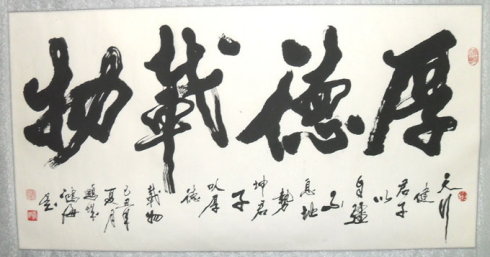 厚德載物
天行
健
君子
以
自彊
不
息地
勢
坤君
子
以厚
德
載物
己丑年
夏月